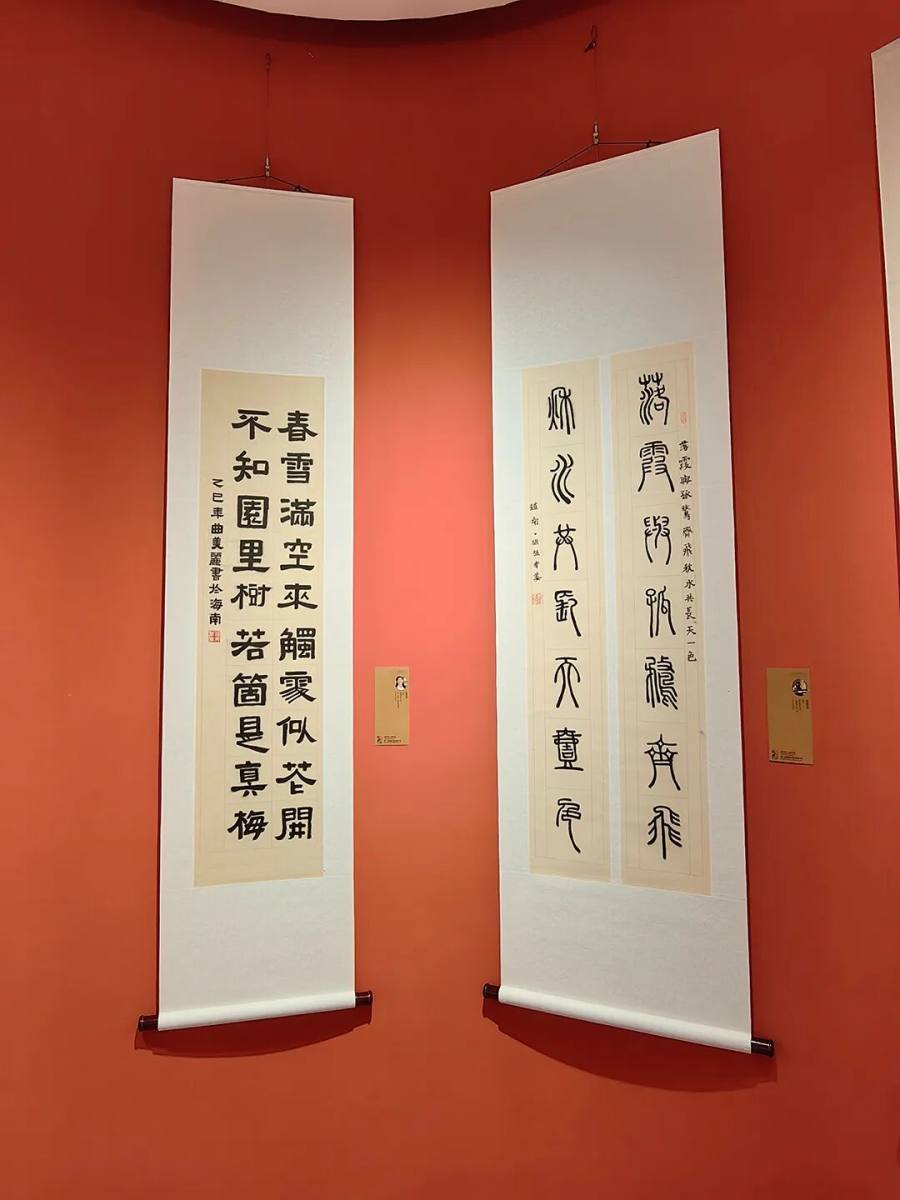 春雪滿空來觸處似花開
不知園里樹若箇是真梅
乙巳年曲美麗書於海南
落霞與孤鶩齊飛秋水共長天一色
落霞與孤鶩齊飛
秋水共長天壹色